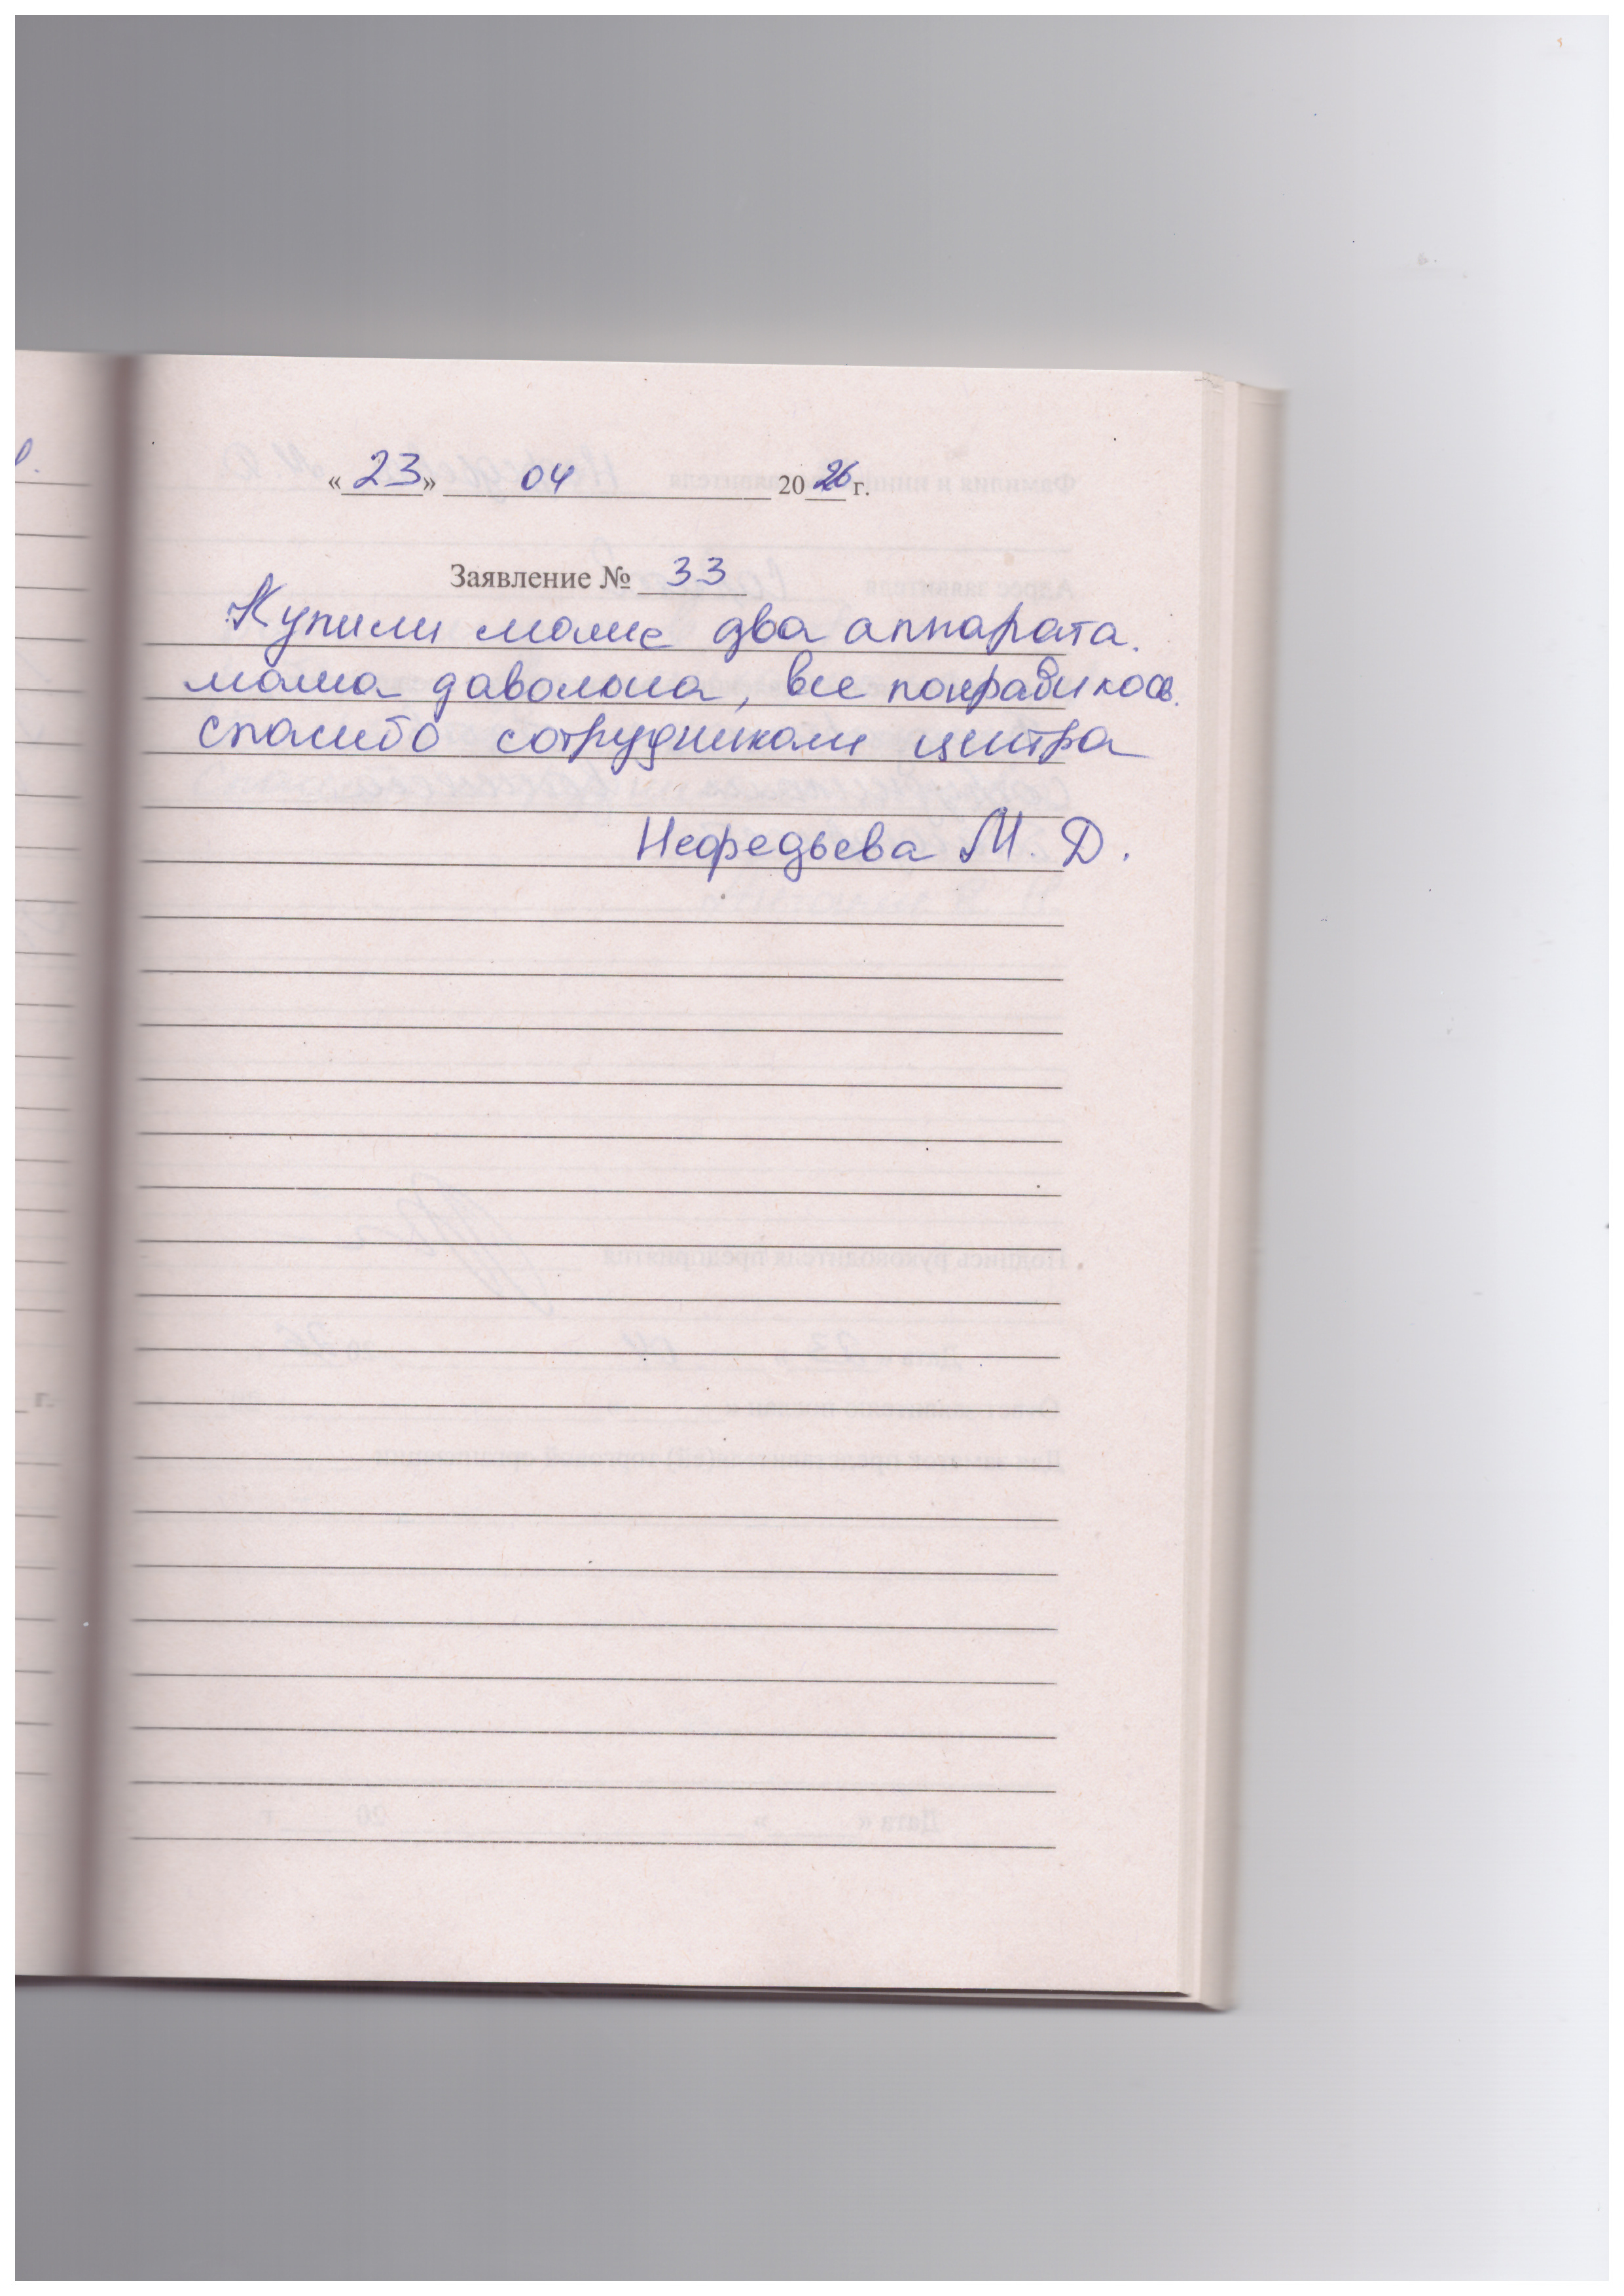 «23» 04 2026 г.
Заявление № 33
Купили маме два аппарата.
мама даволна, все понравилось.
спасибо сотрудникам центра
Нефедьева М. Д.